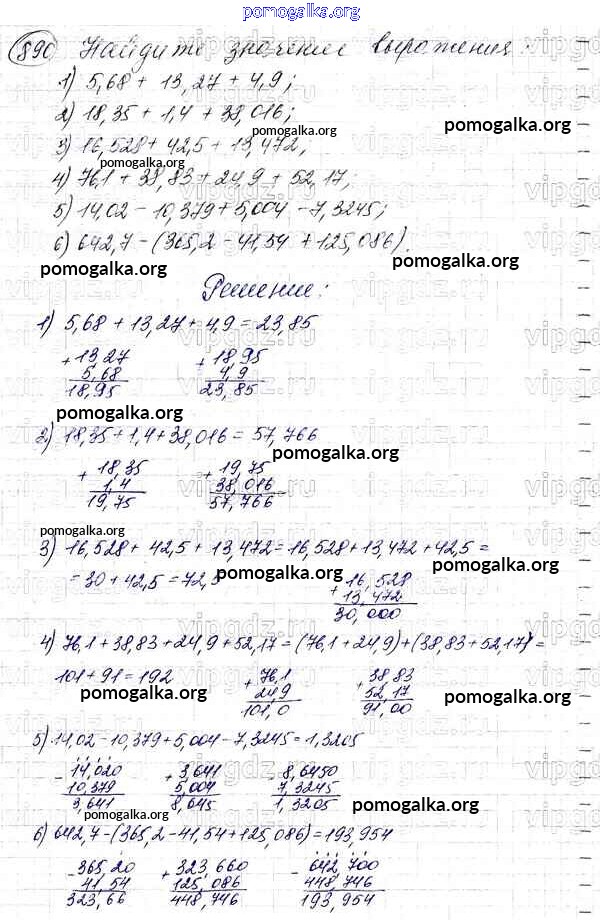 pomogalka.org
890 Найдите значение выражения:
1) 5,68 + 13,27 + 4,9;
2) 18,35 + 1,4 + 38,016;
pomogalka.org
pomogalka.org
3) 16,528 + 42,5 + 13,472;
pomogalka.org
4) 76,1 + 38,83 + 24,9 + 52,17;
5) 14,02 - 10,379 + 5,004 - 7,3245;
pomogalka.org
6) 642,7 - (365,2 - 41,54 + 125,086).
pomogalka.org
pomogalka.org
Решение:
1) 5,68 + 13,27 + 4,9 = 23,85
+ 13,27 + 18,95
5,68 4,9
18,95 23,85
pomogalka.org
pomogalka.org
2) 18,35 + 1,4 + 38,016 = 57,766
pomogalka.org
+ 18,35 + 19,75
1,4 38,016
19,75 57,766
pomogalka.org
pomogalka.org
3) 16,528 + 42,5 + 13,472 = 16,528 + 13,472 + 42,5 =
= 30 + 42,5 = 72,5
pomogalka.org
pomogalka.org
+ 16,528
13,472
30,000
4) 76,1 + 38,83 + 24,9 + 52,17 = (76,1 + 24,9) + (38,83 + 52,17) =
101 + 91 = 192 + 76,1 + 38,83
pomogalka.org 24,9 52,17 pomogalka.org
101,0 91,00
5) 14,02 - 10,379 + 5,004 - 7,3245 = 1,3205
- 14,020 + 3,641 - 8,6450
10,379 5,004 7,3245
3,641 8,645 1,3205
pomogalka.org
6) 642,7 - (365,2 - 41,54 + 125,086) = 193,954
- 365,20 + 323,660 - 642,700
41,54 125,086 448,746
323,66 448,746 193,954